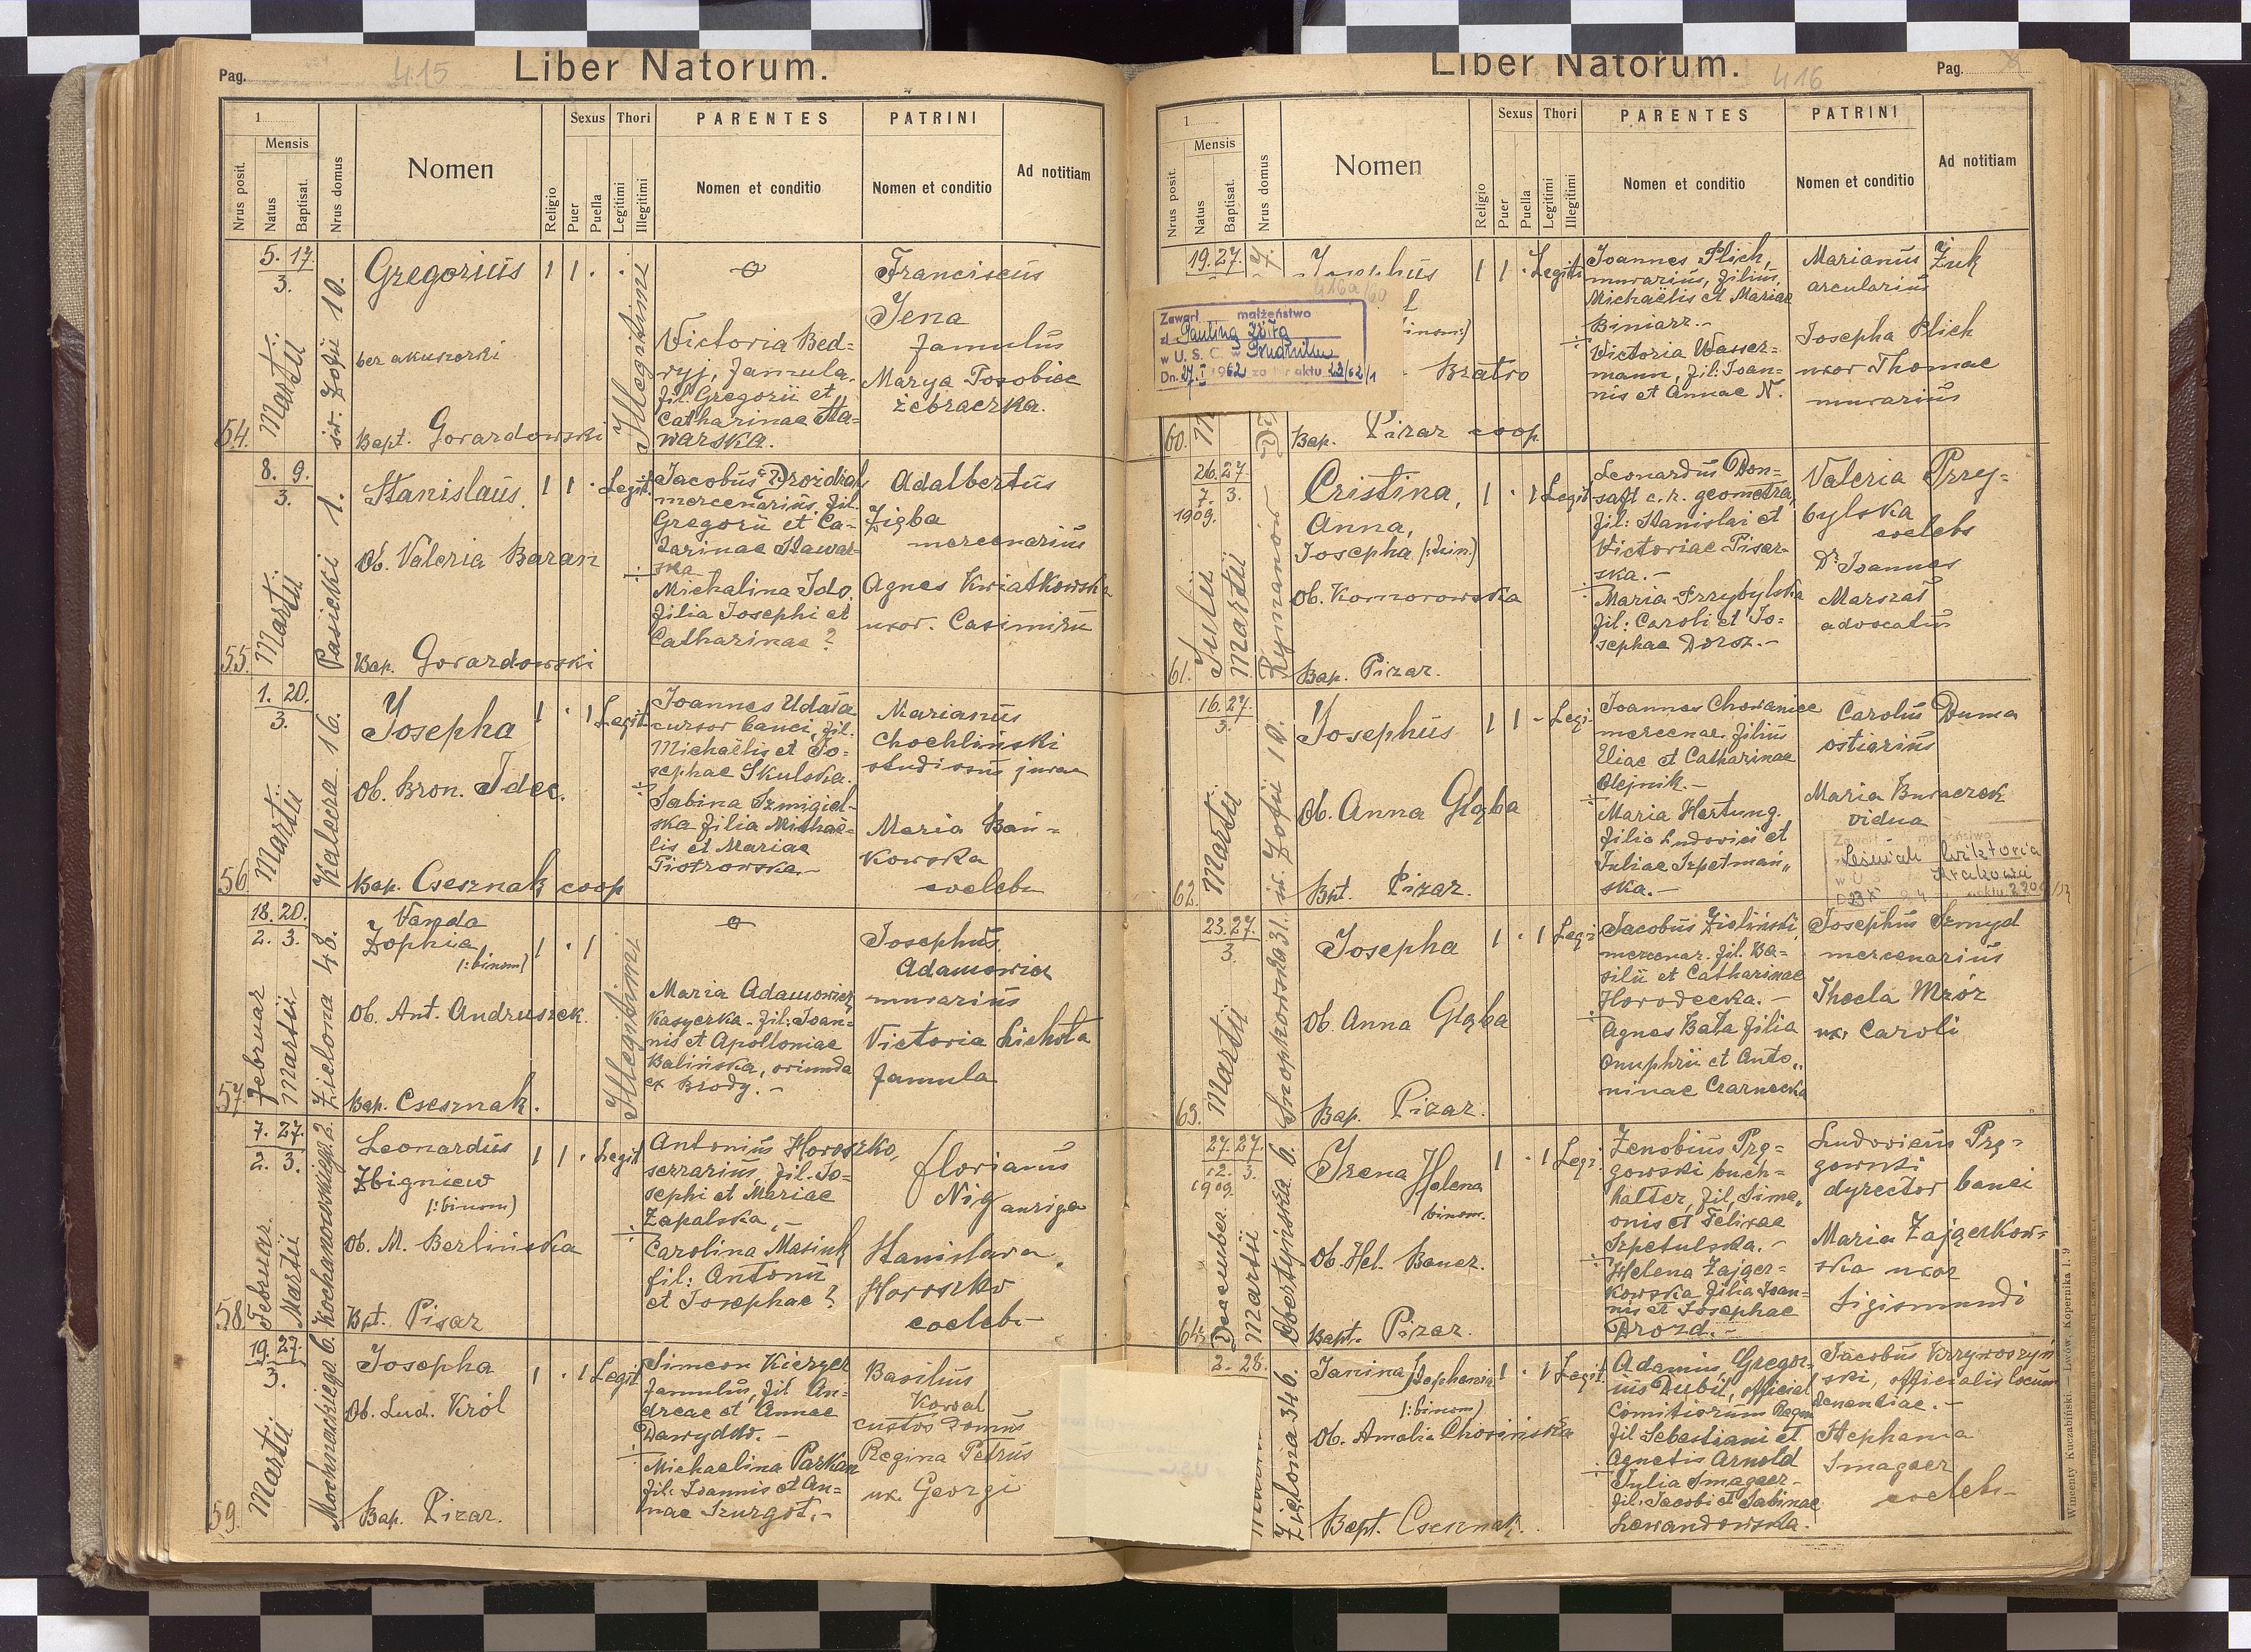 Pag. 415
Liber Natorum.
1
Mensis
Nrus posit.
Natus
Baptisat.
Nrus domus
Nomen
Religio
Sexus
Puer
Puella
Thori
Legitimi
Illegitimi
PARENTES
Nomen et conditio
PATRINI
Nomen et conditio
Ad notitiam
54.
5. 17.
3.
Martii
św. Zofii 10.
Gregorius
1 1 . .
bez akuszerki
Bapt. Gorardowski
Illegitimi
Victoria Bed=
ryj, famula.
fil: Gregorii et
Catharinae Sta=
warska.
Franciscus
Jena
famulus
Marya Tosobiec
żebraczka.
55.
8. 9.
3.
Martii
Martii
Pasieki 1.
Stanislaus.
1 1 . Legit.
Ob. Valeria Baran
Bap. Gorardowski
Jacobus Drozdiak
mercenarius, fil.
Gregorii et Ca=
tarinae Stawar=
ska
÷
Michalina Ido.
filia Josephi et
Catharinae ?
Adalbertus
Zięba
mercenarius
Agnes Kwiatkowska
uxor. Casimiri
56.
1. 20.
3.
Martii
Kalecza 16.
Josepha
1 . 1 Legit.
Ob. Bron. Idec.
Bap. Csesznak coop
Joannes Udała
cursor banci, fil.
Michaëlis et Jo=
sephae Skulska.
÷
Sabina Szmigiel=
ska filia Michaë=
lis et Mariae
Piotrowska.-
Marianus
Chochliński
studiosus jurae
Maria Bań=
kowska
coelebs
57.
18. 20.
2. 3.
Februar
Martii
Zielona 48.
Vanda
Zophia
(:binom)
1 . 1
Ob. Ant. Andruszek.
Bap. Csesznak.
Illegitimi
Maria Adamowicz
Kasyerka - fil: Joan=
nis et Apolloniae
Balińska, oriunda
ex Brody. -
Josephus
Adamowicz
murarius
Victoria Lichota
famula
58.
7. 27.
2. 3.
Februar.
Martii
Kochanowskiego 2.
Leonardus
Zbigniew
(:binom)
1 1 . Legit
Ob. M. Berlińska
Bpt. Pizar
Antonius Horoszko,
serrarius, fil. Jo=
sephi et Mariae
Zapalska,-
÷
Carolina Masiuk
fil: Antonii
et Josephae ?
Florianus
Nig auriga
Stanislava
Horoszko
coelebs
59.
19. 27.
3.
Martii
Mochnackiego 6.
Josepha
1 . 1 Legit
Ob. Lud. Król
Bap. Pizar.
Simeon Kierzer
famulus, fil An=
dreae et Annae
÷
Michaelina Parkan
fil. Joannis et An=
nae Szurgot.-
Basilius
Kowal
custos domus
Regina Petrus
ux. Georgi
Liber Natorum.
416
Pag.
1
Mensis
Nrus posit.
Natus
Baptisat.
Nrus domus
Nomen
Religio
Sexus
Puer
Puella
Thori
Legitimi
Illegitimi
PARENTES
Nomen et conditio
PATRINI
Nomen et conditio
Ad notitiam
60.
19. 27.
Josephus
1 1 . Legiti
416a/60
Zawarł małżeństwo
z Pauliną
w U. S. C. w
Dn. 27 I 1962 za Nr aktu 23/62/1
Bratro
Bap. Pizar coop
Joannes Plich,
murarius, filius
Michaëlis et Mariae
Biniarz.-
÷
Victoria Wasser=
mann, fil: Joan=
nis et Annae N.
Marianus Żuk
arcularius
Josepha Plich
uxor Thomae
murarius
61.
26. 27.
7. 3.
1909.
Julii
Martii
Rymanów
Cristina,
Anna,
Josepha (:trin.)
1 . 1 Legit
Ob. Komorowska
Bap. Pizar.
Leonardus Don=
saft c. r. geometra,
fil: Stanislai et
Victoriae Piser=
ska.-
÷
Maria Przybylska
fil: Caroli et Jo=
sephae Dorosz.-
Valeria Przy=
bylska
coelebs
Dr Joannes
Marszał
advocatus
62.
16. 27.
3.
Martii
św. Zofii 10.
Josephus
1 1 - Legi-
Ob. Anna Głąba
Bpt. Pizar.
Joannes Chowaniec
mercenar. filius
Eliae et Catharinae
Olejnik.-
÷
Maria Hartung
filia Ludovici et
Juliae Szpetmań„
ska.-
Carolus Duma
ostiarius
Maria Buraczek
vidua
Zawarł małżeństwo
Leśniak Wiktoria
Krakowie
63.
23. 27.
3.
Martii
Snopkowska 31.
Josepha
1 . 1 Legi-
Ob. Anna Głąba
Bap. Pizar.
Jacobus Zieliński,
mercenar. fil. Ba=
silii et Catharinae
Horodecka.-
÷
Agnes Bała filia
Onuphrii et Anto„
ninae Czarnecka
Josephus Szmyd
mercenarius
Thecla Mróz
ux. Caroli
64.
27. 27.
12. 3.
1909.
December.
Martii
Obertyńska 6.
Irena Helena
binom.
1 . 1 Legi.
Ob. Hel. Bauer.
Bapt. Pizar.
Zenobius Prę=
gowski buch=
halter, fil, Sime„
onis et Felixae
Szpetulska.-
÷
Helena Zającz=
kowska filia Joan=
nis et Josephae
Drozd.-
Ludovicus Prę=
gowski
dyrector banci
Maria Zajączkow=
ska uxor
Sigismundi
2. 28.
Zielona 34 b.
Janina Stephania
(:binom)
1 . 1 Legit.
Ob. Amalia Chosińska
Bapt. Csesznak.
Adamus, Gregor=
ius Dubil, official
Comitiorum Regn
fil Sebastiani et
Agnetis Arnold
÷
Julia Smagaer-
fil: Jacobi et Sabinae
Lewandowska.
Jacobus Krzywoszyń
ski, officialis locum
tenentiae.-
Stephania
Smagaer
coelebs
Wincenty Kuczabiński. — Lwów, Kopernika l. 9